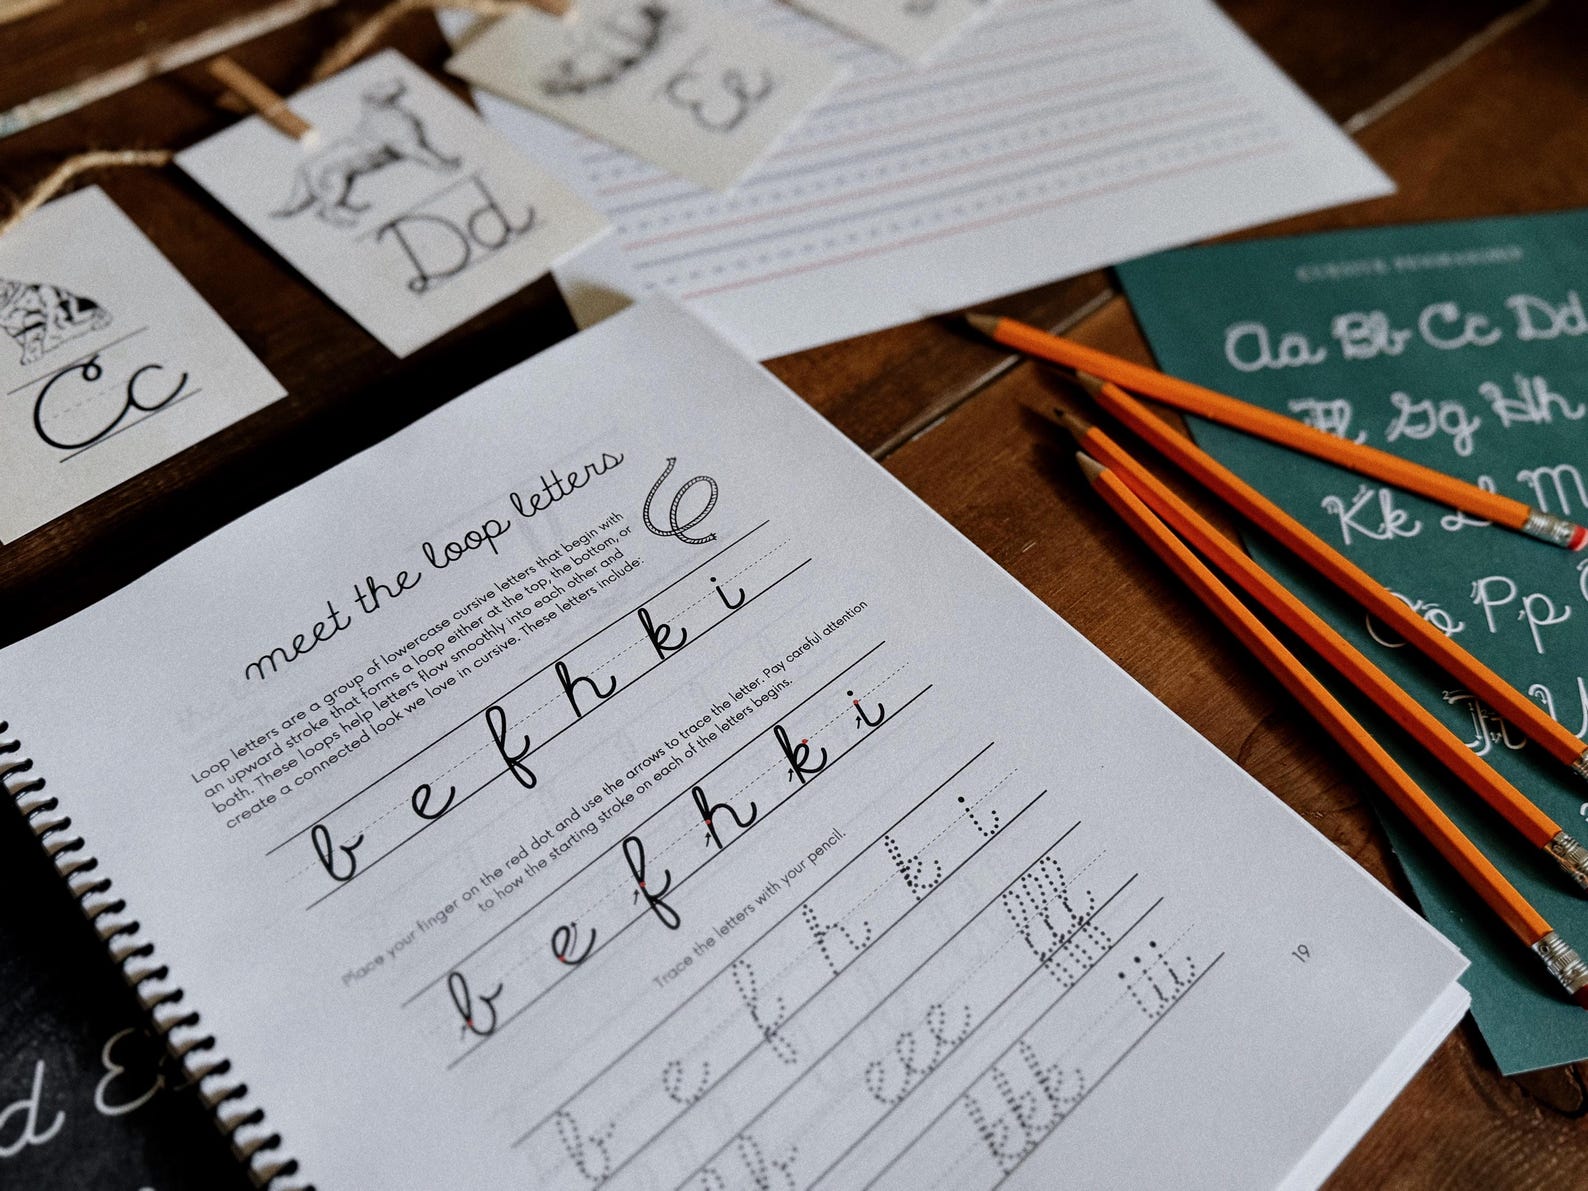 Ee
Dd
Cc
meet the loop letters
Loop letters are a group of lowercase cursive letters that begin with
an upward stroke that forms a loop either at the top, the bottom, or
both. These loops help letters flow smoothly into each other and
create a connected look we love in cursive. These letters include:
b e f h k i
Place your finger on the red dot and use the arrows to trace the letter. Pay careful attention
to how the starting stroke on each of the letters begins.
b e f h k i
Trace the letters with your pencil.
b e f h k i
eee fff
kkk iii
19
CURSIVE
Aa Bb Cc Dd
Ff Gg Hh
Kk L M
Oo Pp
d E